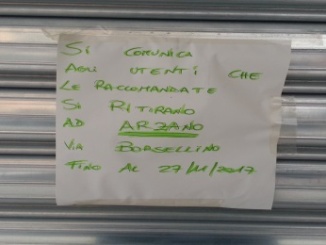 SI COMUNICA
AGLI UTENTI CHE
LE RACCOMANDATE
SI RITIRANO
AD ARZANO
VIA BORSELLINO
FINO AL 27/11/2017